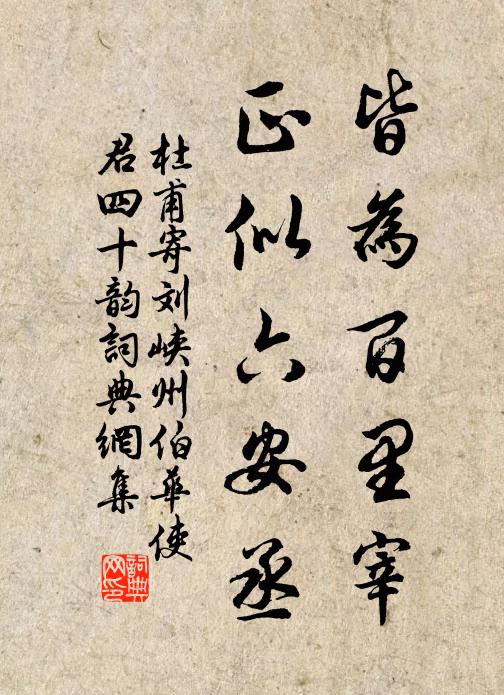 皆為百里宰
正似六安丞
杜甫寄刘峡州伯華使
君四十韵詞典網集
詞典网印